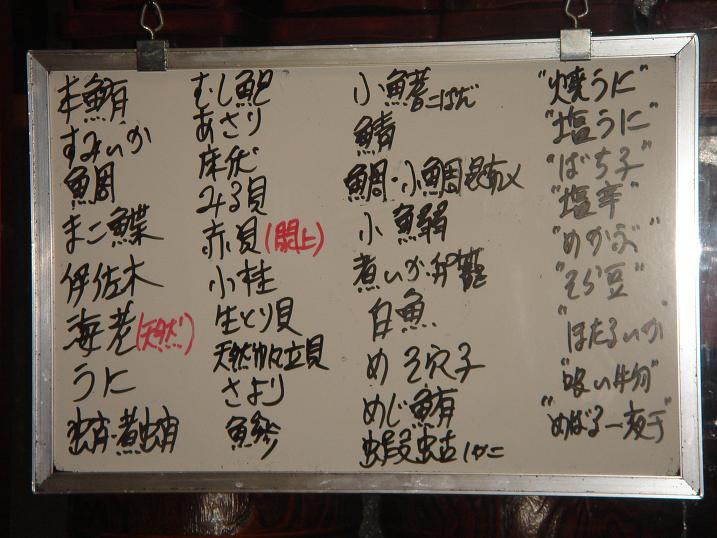 本鮪
すみいか
鯛
まこ鰈
伊佐木
海老(天然)
うに
蛸・煮蛸
むし鮑
あさり
床伏
みる貝
赤貝(閖上)
小柱
生とり貝
天然帆立貝
さより
鯵
小鰭こはだ
鯖
鯛・小鯛昆布〆
小鰯
煮いか・印籠
白魚
めそ穴子
めじ鮪
蝦蛄しゃこ
"焼うに"
"塩うに"
"ばち子"
"塩辛"
"めかぶ"
"そら豆"
"ほたるいか"
"吸い物"
"めばる一夜干"